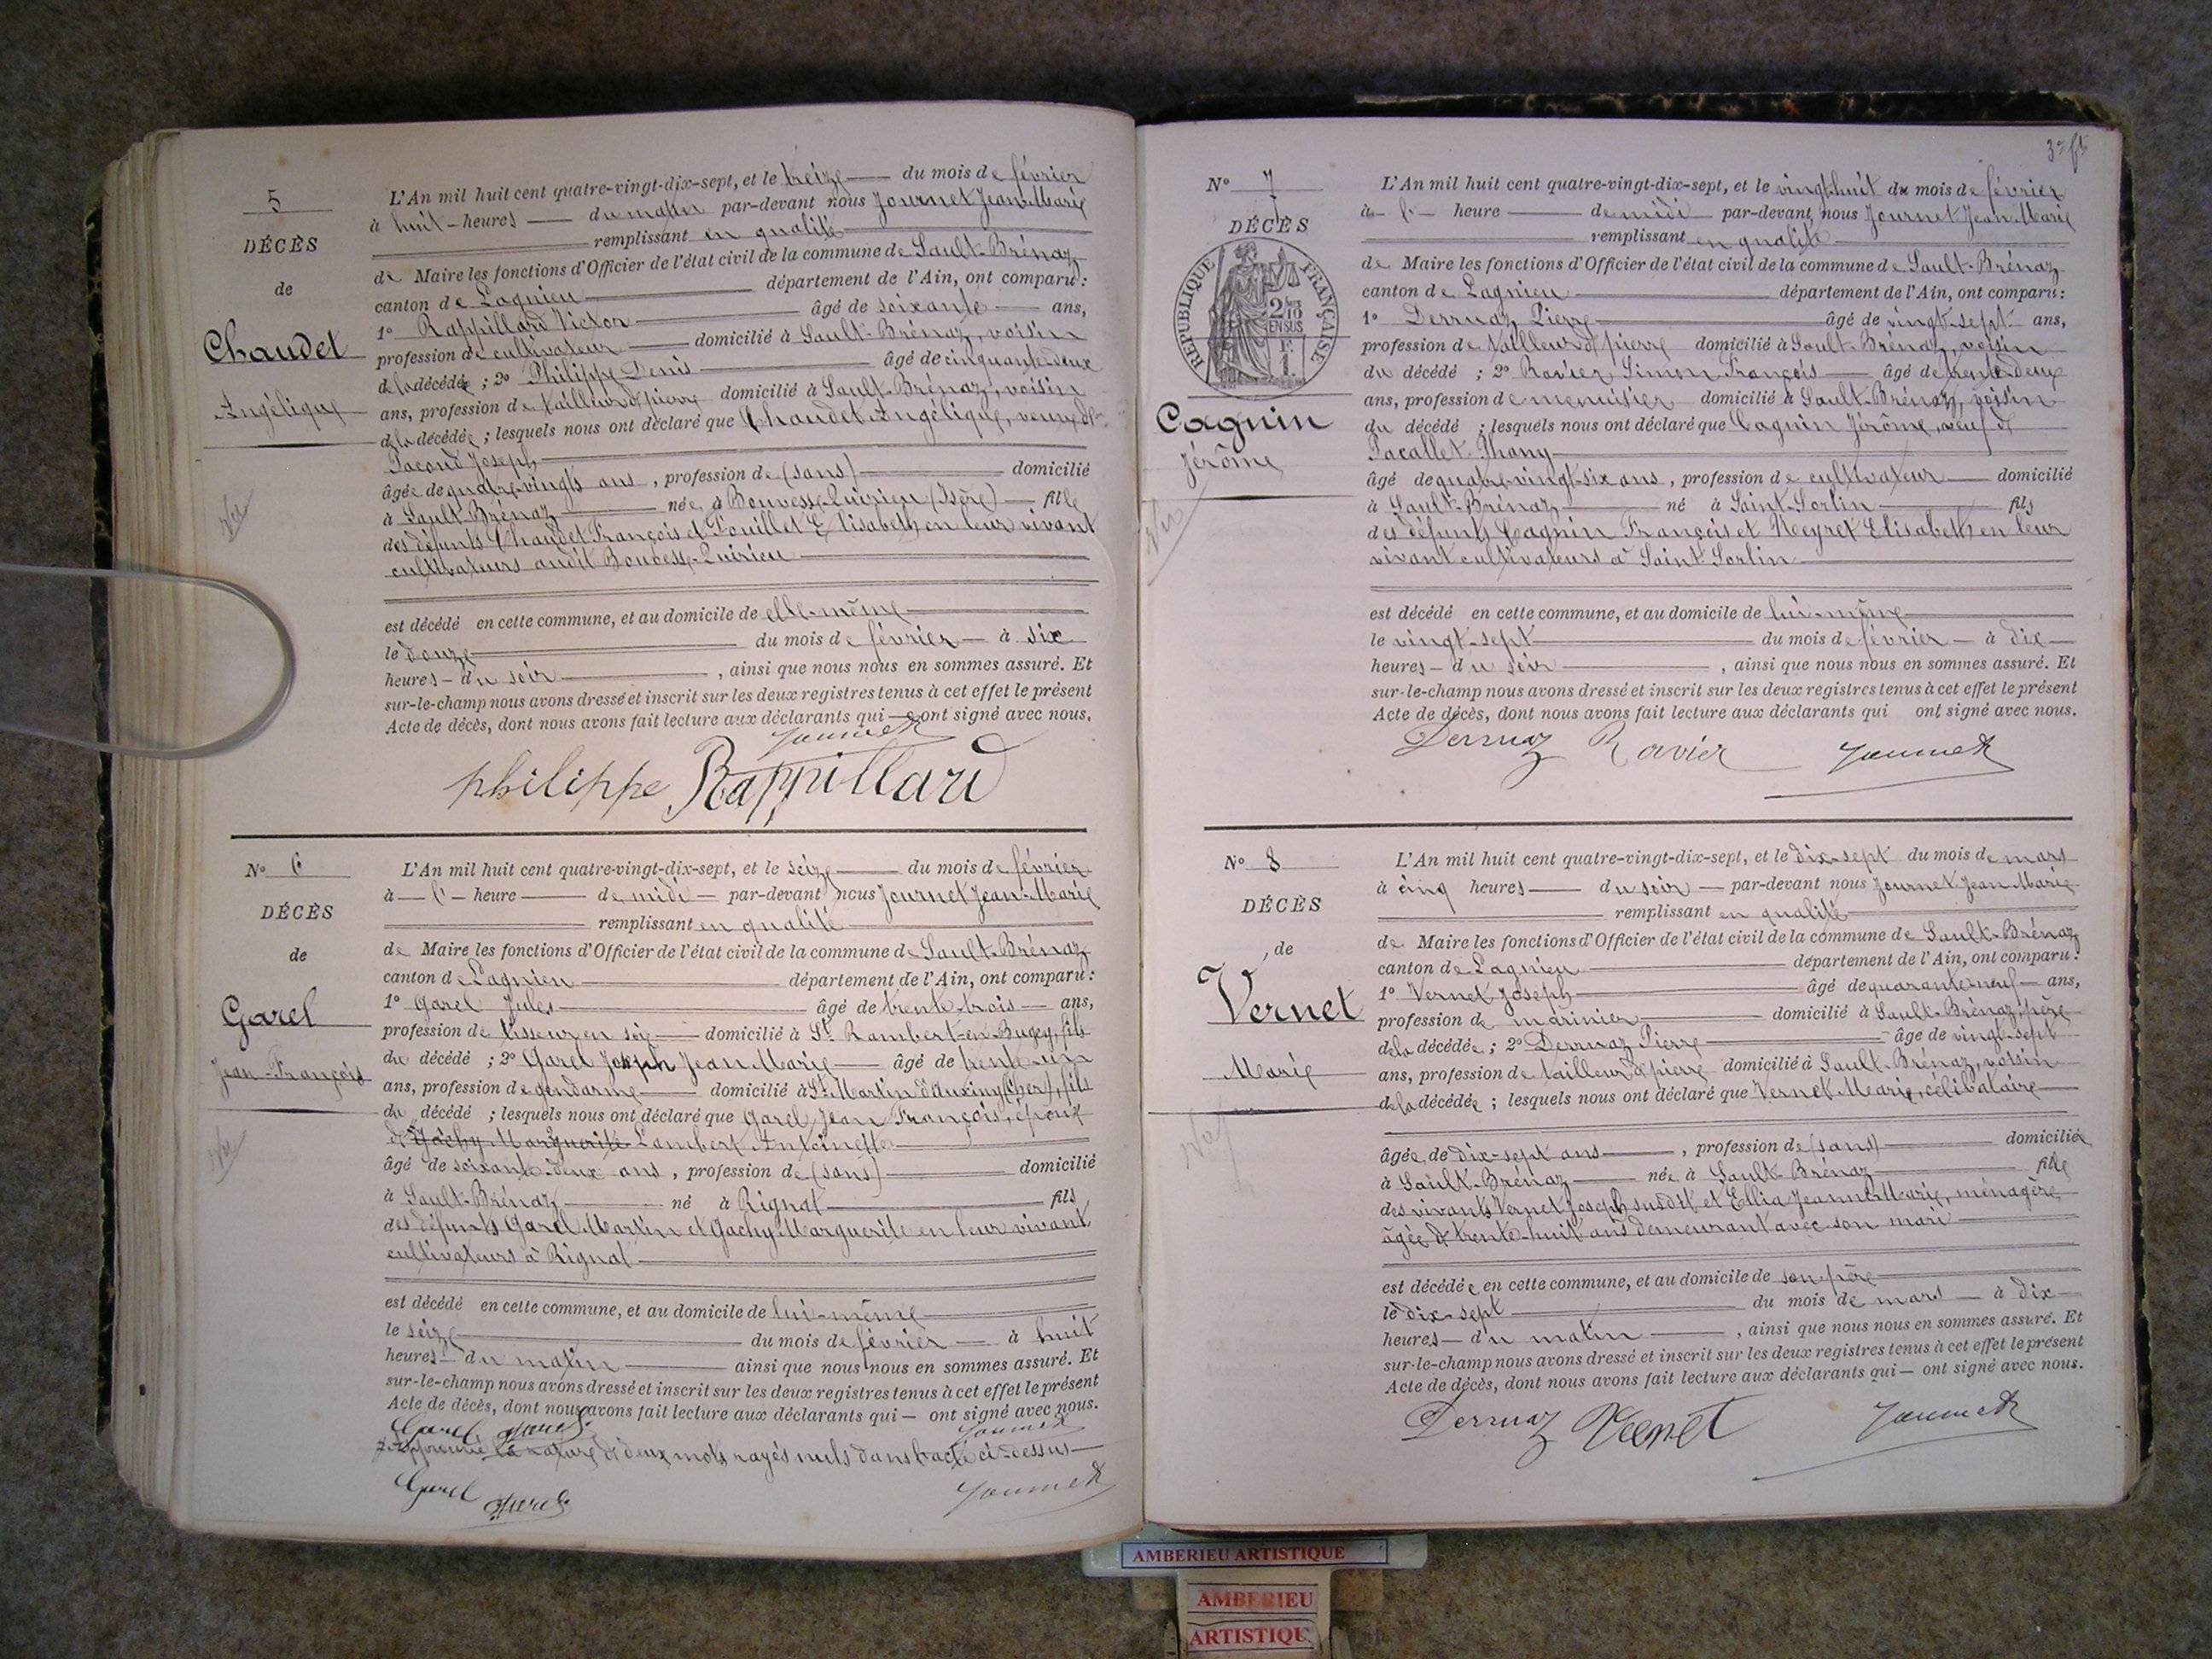 5
DÉCÈS
de
Chaudet
Angélique
L'An mil huit cent quatre-vingt-dix-sept, et le treize du mois de février
à huit heures du matin par-devant nous Journet Jean-Marie
remplissant en qualité
de Maire les fonctions d'Officier de l'état civil de la commune de Sault-Brénaz
canton de Lagnieu département de l'Ain, ont comparu :
1° Rappillard Victor âgé de soixante ans,
profession de cultivateur domicilié à Sault-Brénaz, voisin
de la décédée ; 2° Philippe Denis âgé de cinquante-deux
ans, profession de tailleur de pierre domicilié à Sault-Brénaz, voisin
de la décédée ; lesquels nous ont déclaré que Chaudet Angélique, veuve de
Joseph
âgée de quatre-vingts ans, profession de (sans) domicilié
à Sault-Brénaz née à Bouvesse-Quirieu (Isère) fille
des défunts Chaudet François et Elisabeth en leur vivant
cultivateurs audit Bouvesse-Quirieu
est décédé en cette commune, et au domicile de elle-même
le douze du mois de février à six
heures du soir, ainsi que nous nous en sommes assuré. Et
sur-le-champ nous avons dressé et inscrit sur les deux registres tenus à cet effet le présent
Acte de décès, dont nous avons fait lecture aux déclarants qui ont signé avec nous.
Journet
philippe Rappillard
N° 6
DÉCÈS
de
Garel
Jean-François
L'An mil huit cent quatre-vingt-dix-sept, et le seize du mois de février
à l' heure de midi par-devant nous Journet Jean-Marie
remplissant en qualité
de Maire les fonctions d'Officier de l'état civil de la commune de Sault-Brénaz
canton de Lagnieu département de l'Ain, ont comparu :
1° Garel Jules âgé de trente-trois ans,
profession de tisseur en soie domicilié à St Rambert-en-Bugey, fils
du décédé ; 2° Garel Joseph Jean Marie âgé de trente-un
ans, profession de gendarme domicilié à St Martin d'Auxigny (Cher), fils
du décédé ; lesquels nous ont déclaré que Garel Jean François, époux
de Gachy Marguerite Lambert Antoinette
âgé de soixante-deux ans, profession de (sans) domicilié
à Sault-Brénaz né à Rignat fils
des défunts Garel Martin et Gachy Marguerite en leur vivant
cultivateurs à Rignat
est décédé en cette commune, et au domicile de lui-même
le seize du mois de février à huit
heures du matin ainsi que nous nous en sommes assuré. Et
sur-le-champ nous avons dressé et inscrit sur les deux registres tenus à cet effet le présent
Acte de décès, dont nous avons fait lecture aux déclarants qui ont signé avec nous.
Garel Garel Journet
Approuvé la rature de deux mots rayés nuls dans l'acte ci-dessus
Garel Garel Journet
N° 7
DÉCÈS
RÉPUBLIQUE FRANÇAISE
2/10 EN SUS
F. 1.
Cagnin
Jérôme
L'An mil huit cent quatre-vingt-dix-sept, et le vingt-huit du mois de février
à l' heure de midi par-devant nous Journet Jean-Marie
remplissant en qualité
de Maire les fonctions d'Officier de l'état civil de la commune de Sault-Brénaz
canton de Lagnieu département de l'Ain, ont comparu :
1° Derruaz Pierre âgé de vingt-sept ans,
profession de tailleur de pierre domicilié à Sault-Brénaz, voisin
du décédé ; 2° Ravier Simon François âgé de trente-deux
ans, profession de menuisier domicilié à Sault-Brénaz, voisin
du décédé ; lesquels nous ont déclaré que Cagnin Jérôme, veuf de
Pacallet Phany
âgé de quatre-vingt-six ans, profession de cultivateur domicilié
à Sault-Brénaz né à Saint-Sorlin fils
des défunts Cagnin François et Neyret Elisabeth en leur
vivant cultivateurs à Saint-Sorlin
est décédé en cette commune, et au domicile de lui-même
le vingt-sept du mois de février à dix
heures du soir, ainsi que nous nous en sommes assuré. Et
sur-le-champ nous avons dressé et inscrit sur les deux registres tenus à cet effet le présent
Acte de décès, dont nous avons fait lecture aux déclarants qui ont signé avec nous.
Derruaz Ravier Journet
N° 8
DÉCÈS
de
Vernet
Marie
L'An mil huit cent quatre-vingt-dix-sept, et le dix-sept du mois de mars
à cinq heures du soir par-devant nous Journet Jean-Marie
remplissant en qualité
de Maire les fonctions d'Officier de l'état civil de la commune de Sault-Brénaz
canton de Lagnieu département de l'Ain, ont comparu :
1° Vernet Joseph âgé de quarante-neuf ans,
profession de marinier domicilié à Sault-Brénaz, père
de la décédée ; 2° Derruaz Pierre âgé de vingt-sept
ans, profession de tailleur de pierre domicilié à Sault-Brénaz, voisin
de la décédée ; lesquels nous ont déclaré que Vernet Marie, célibataire
âgée de dix-sept ans, profession de (sans) domiciliée
à Sault-Brénaz née à Sault-Brénaz fille
des vivants Vernet Joseph susdit et Ellia Jeanne Marie, ménagère
âgée de trente-huit ans demeurant avec son mari
est décédée en cette commune, et au domicile de son père
le dix-sept du mois de mars à dix
heures du matin, ainsi que nous nous en sommes assuré. Et
sur-le-champ nous avons dressé et inscrit sur les deux registres tenus à cet effet le présent
Acte de décès, dont nous avons fait lecture aux déclarants qui ont signé avec nous.
Derruaz Vernet Journet
AMBERIEU ARTISTIQUE
AMBERIEU
ARTISTIQU